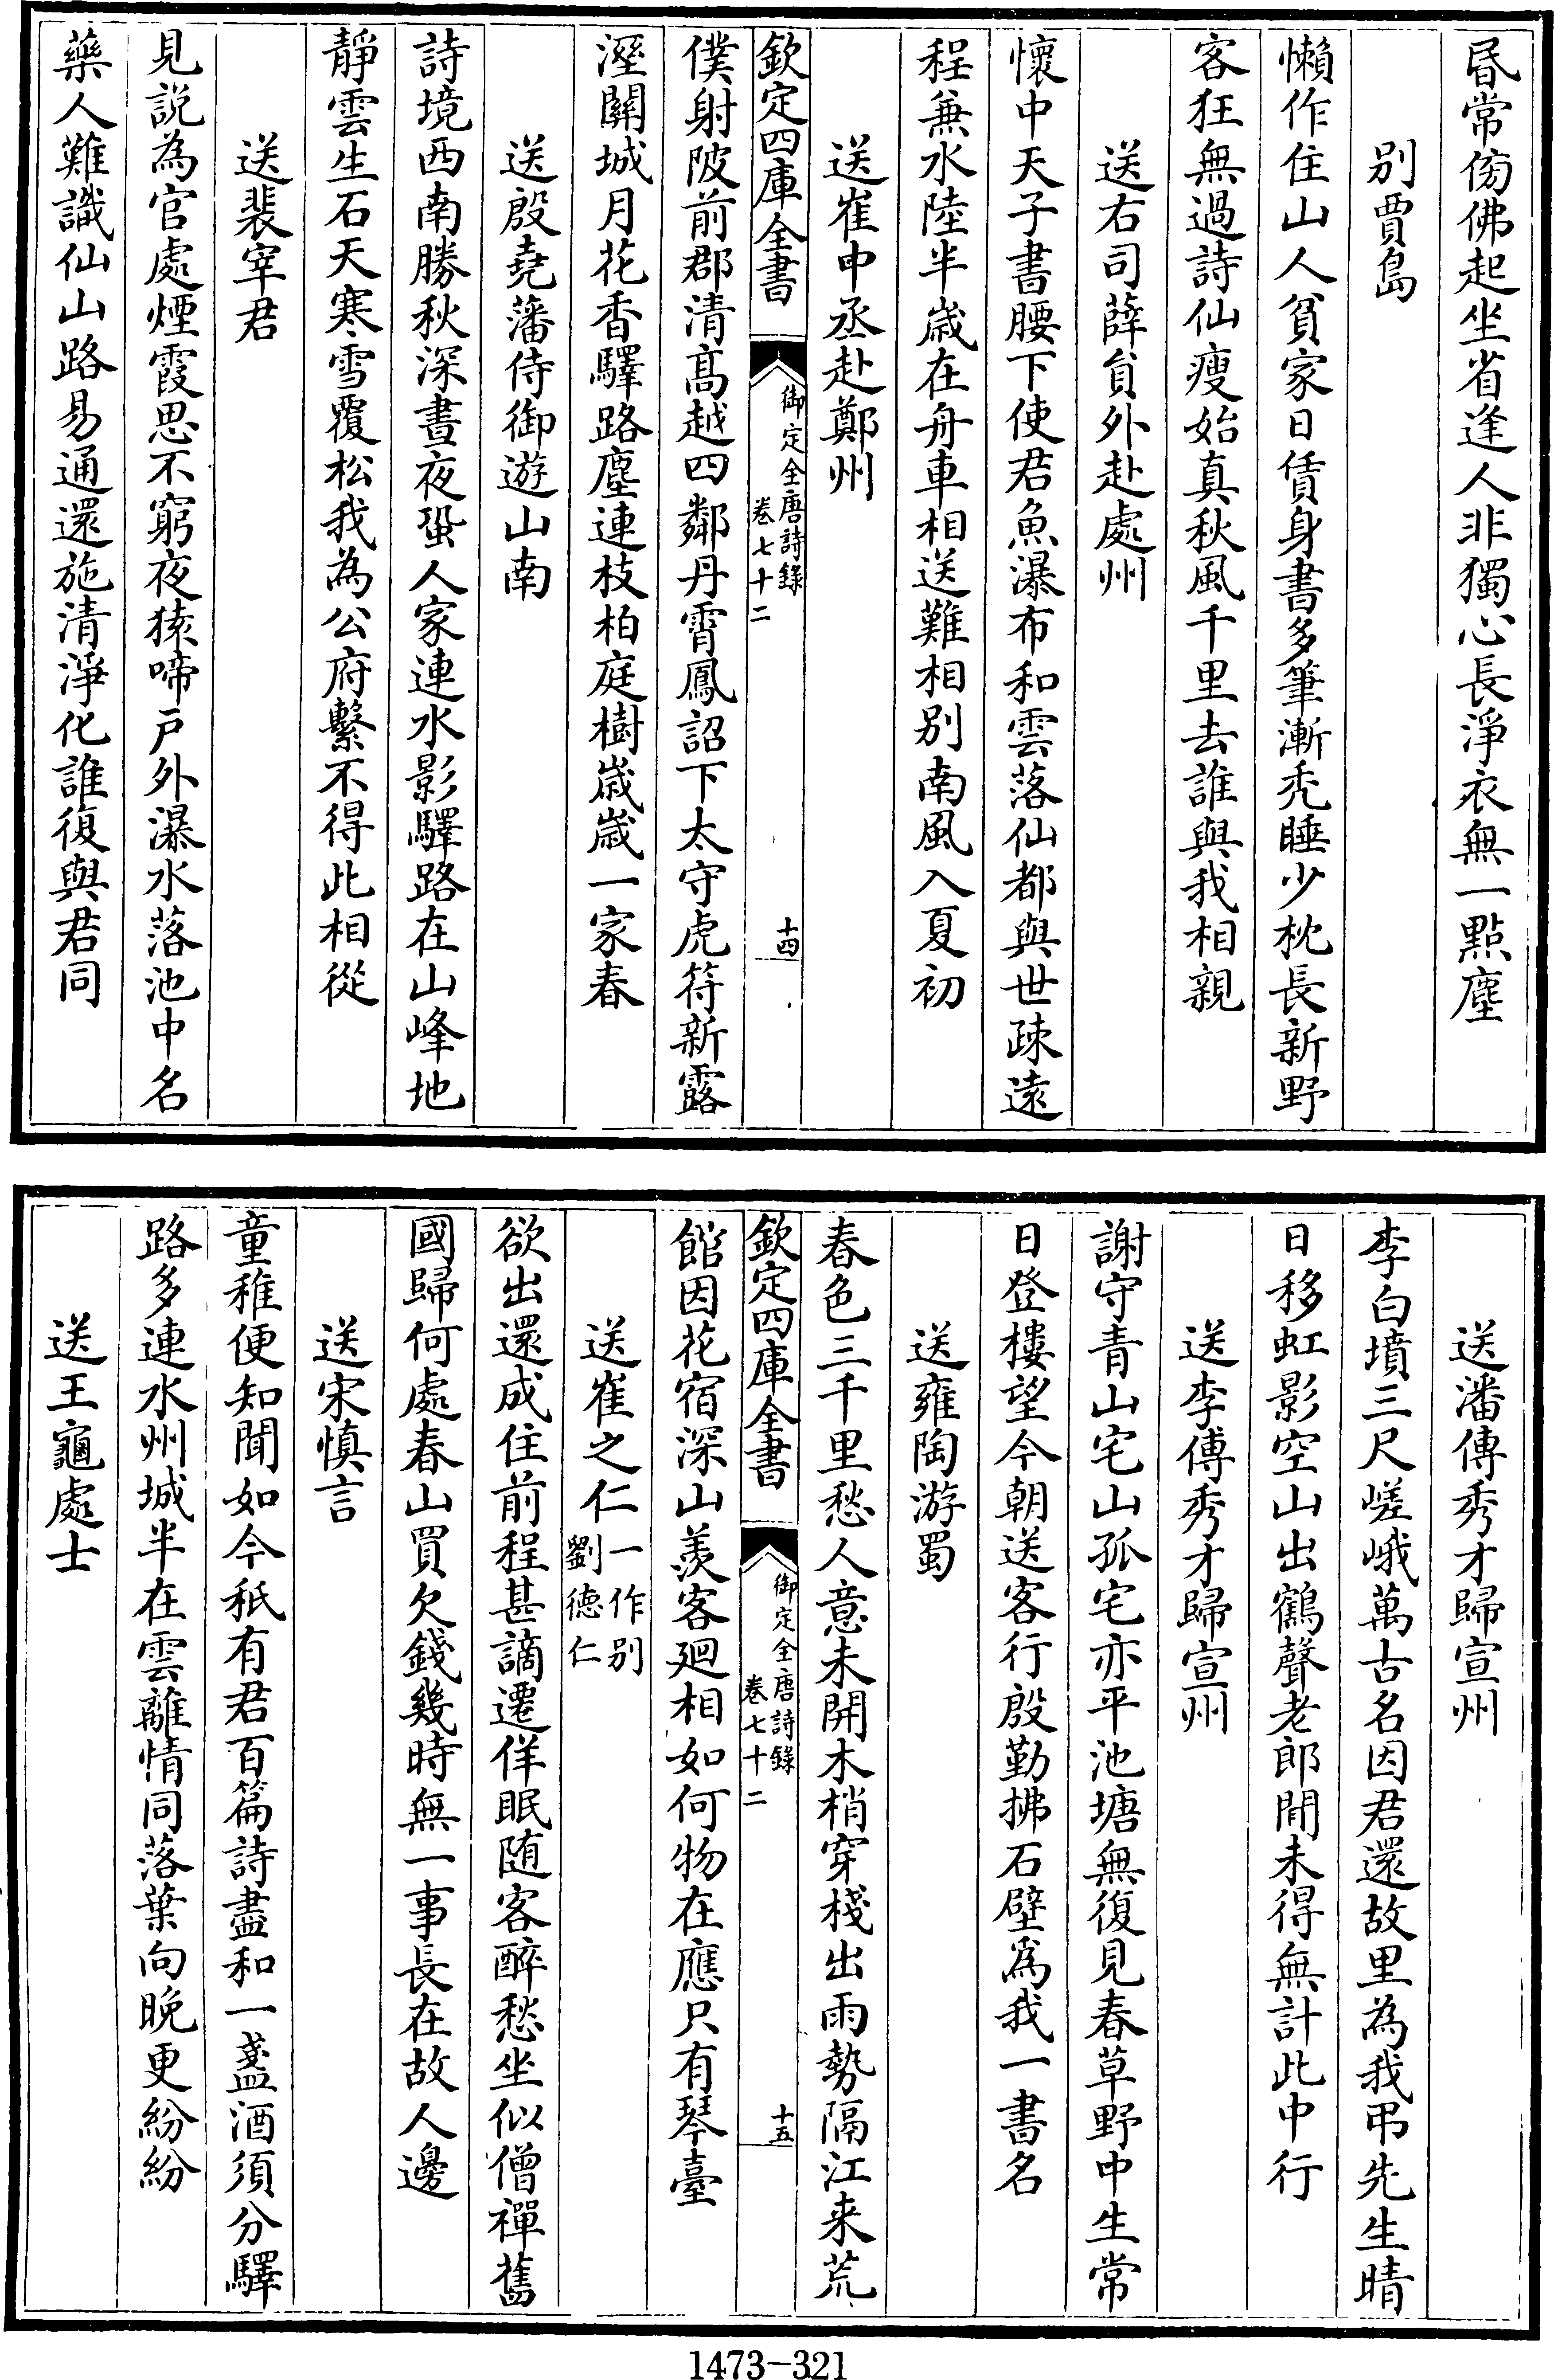 昬常傍佛起坐省逢人非獨心長淨衣無一點塵
别賈島
懶作住山人貧家日賃身書多筆漸秃睡少枕長新野
客狂無過詩仙瘦始真秋風千里去誰與我相親
送右司薛員外赴處州
懷中天子書腰下使君魚瀑布和雲落仙都與世疎遠
程兼水陸半嵗在舟車相送難相别南風入夏初
送崔中丞赴鄭州
欽定四庫全書
御定全唐詩錄
卷七十二
十四
僕射陂前郡清髙越四鄰丹霄鳳詔下太守虎符新露
溼關城月花香驛路塵連枝柏庭樹嵗嵗一家春
送殷堯藩侍御遊山南
詩境西南勝秋深晝夜蛩人家連水影驛路在山峰地
靜雲生石天寒雪覆松我為公府繫不得此相從
送裴宰君
見説為官處煙霞思不窮夜猿啼戸外瀑水落池中名
藥人難識仙山路易通還施清淨化誰復與君同
送潘傳秀才歸宣州
李白墳三尺嵯峨萬古名因君還故里為我弔先生晴
日移虹影空山出鶴聲老郎閒未得無計此中行
送李傅秀才歸宣州
謝守青山宅山孤宅亦平池塘無復見春草野中生常
日登樓望今朝送客行殷勤拂石壁爲我一書名
送雍陶游蜀
春色三千里愁人意未開木梢穿棧出雨勢隔江来荒
欽定四庫全書
御定全唐詩錄
卷七十二
十五
館因花宿深山羨客廻相如何物在應只有琴臺
送崔之仁一作别劉徳仁
欲出還成住前程甚謫遷佯眠随客醉愁坐似僧禪舊
國歸何處春山買欠錢幾時無一事長在故人邊
送宋慎言
童稚便知聞如今秖有君百篇詩盡和一盞酒須分驛
路多連水州城半在雲離情同落葉向晚更紛紛
送王龜處士
1473-321